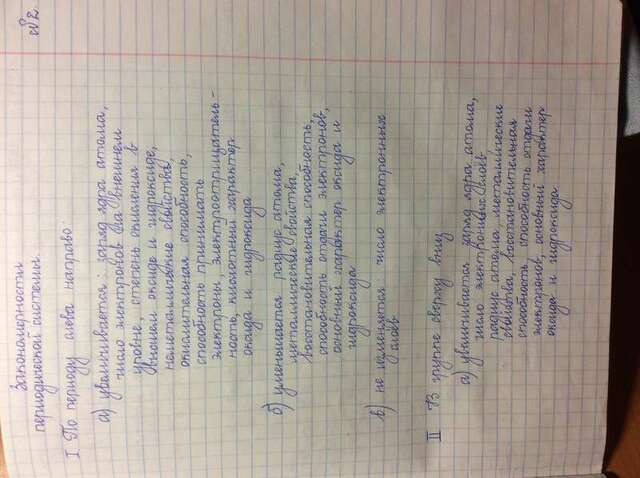 Закономерности
периодической системы.
№2
I По периоду слева направо:
а) увеличивается: заряд ядра атома,
число электронов на внешнем
уровне, степень окисления в
высшем оксиде и гидроксиде,
неметаллические свойства,
окислительная способность,
способность принимать
электроны, электроотрицатель-
ность, кислотный характер
оксида и гидроксида
б) уменьшается: радиус атома,
металлические свойства,
восстановительная способность,
способность отдачи электронов,
основный характер оксида и
гидроксида
в) не изменяется: число электронных
слоёв
II В группе сверху вниз
а) увеличивается заряд ядра атома,
число электронных слоев,
радиус атома, металлические
свойства, восстановительная
способность, способность отдачи
электронов, основный характер
оксида и гидроксида